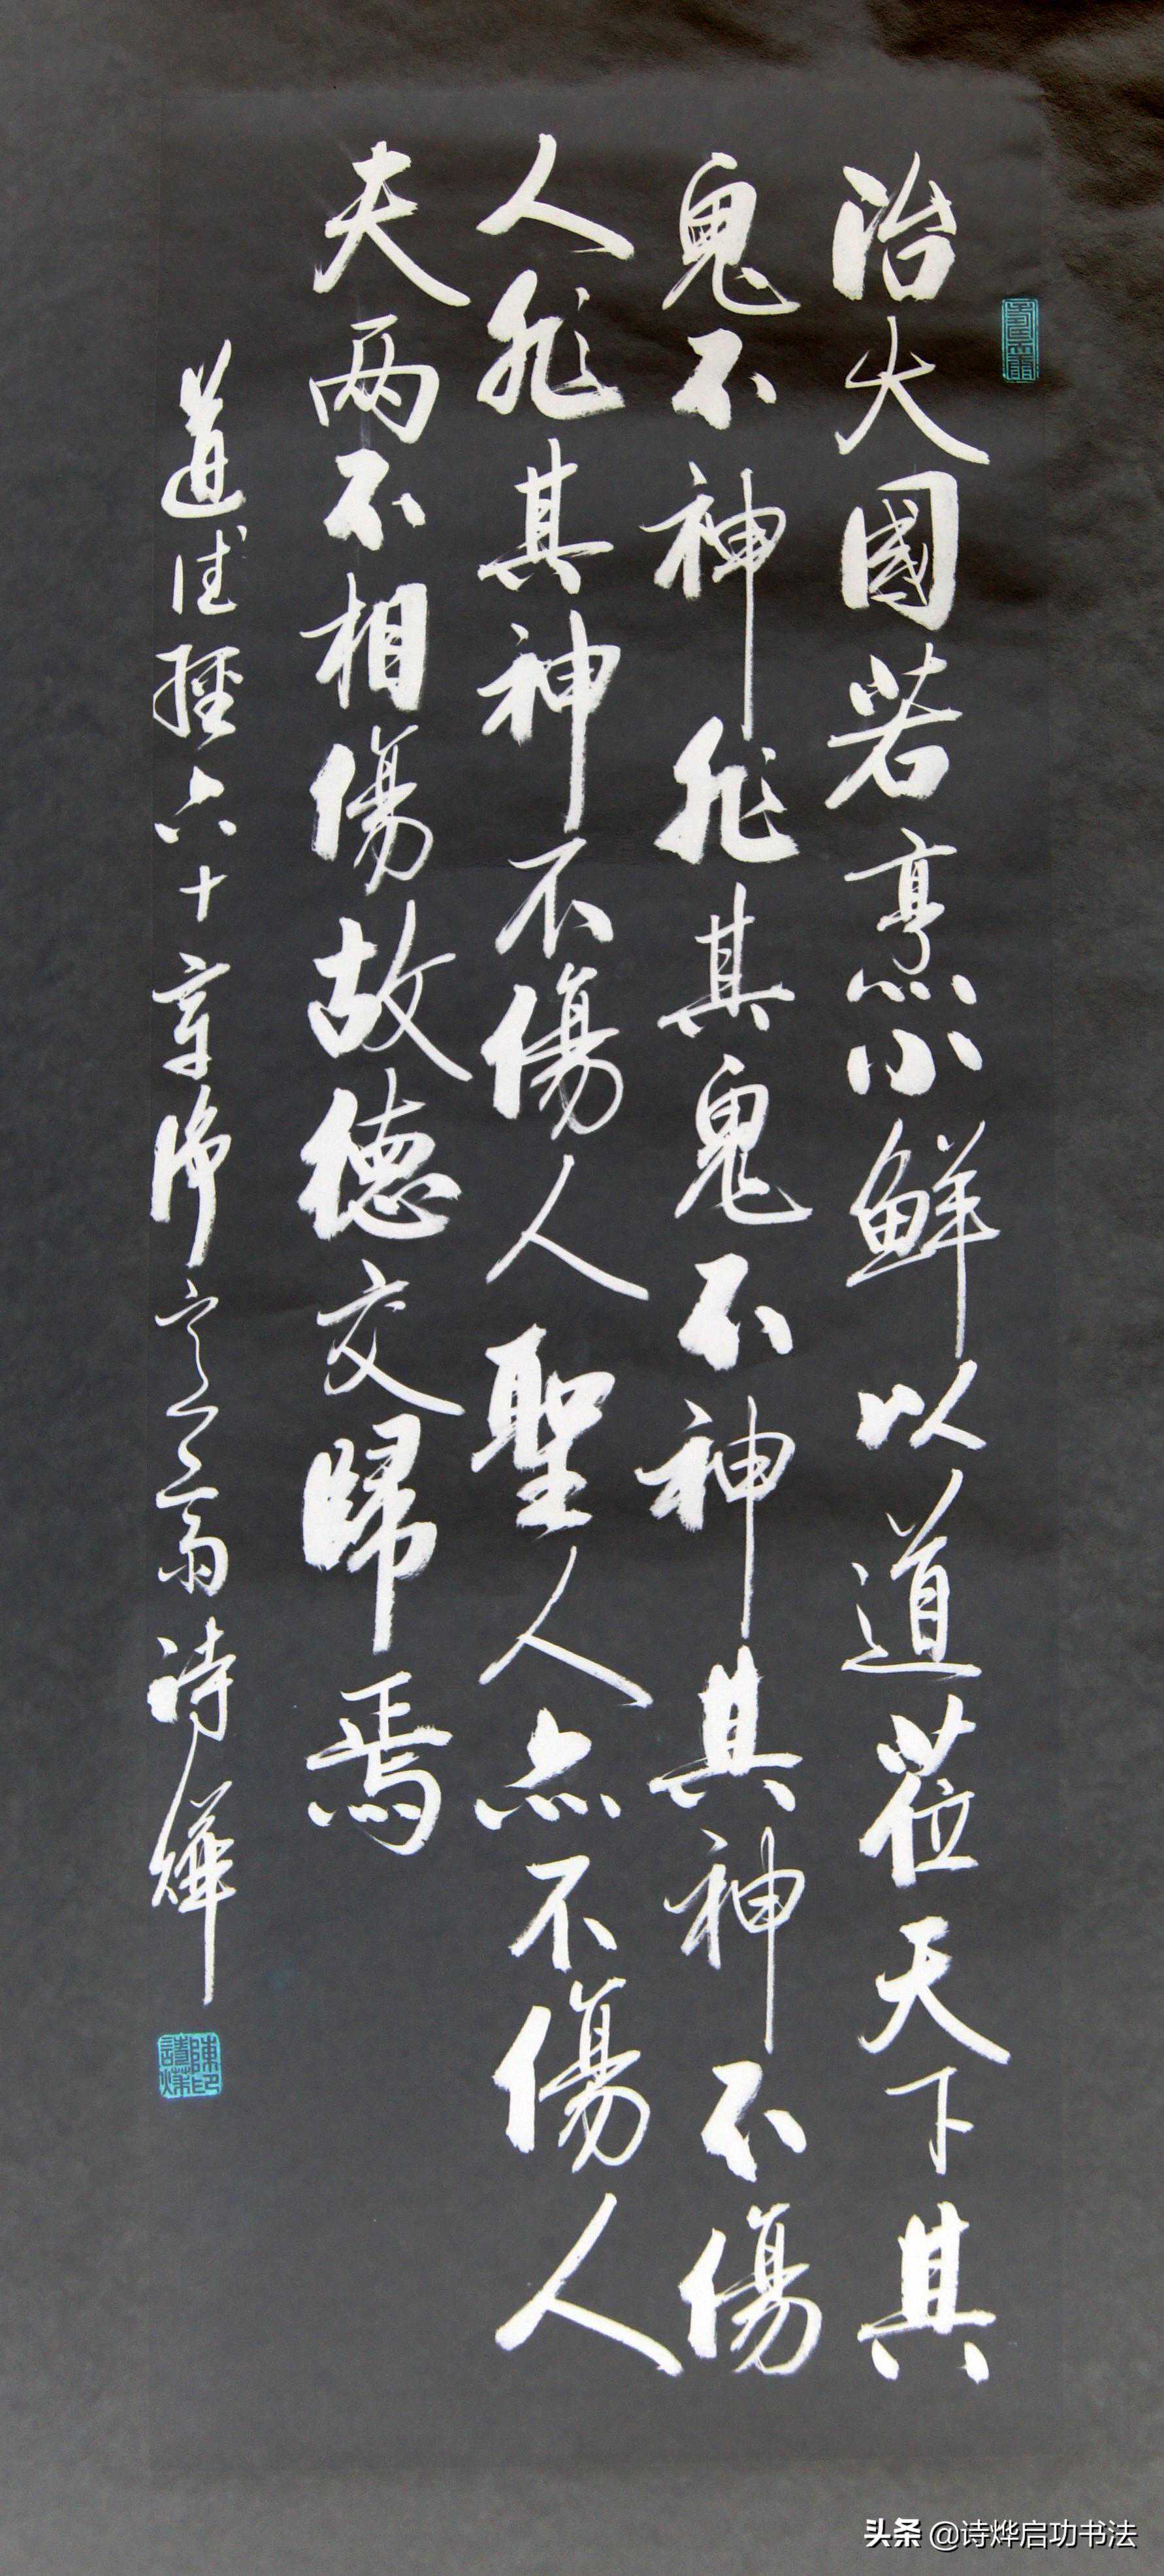 治大國若烹小鲜以道莅天下其
鬼不神非其鬼不神其神不傷
人非其神不傷人聖人亦不傷人
夫两不相傷故德交歸焉
道德經六十章 诗燁
头条 @诗烨启功书法